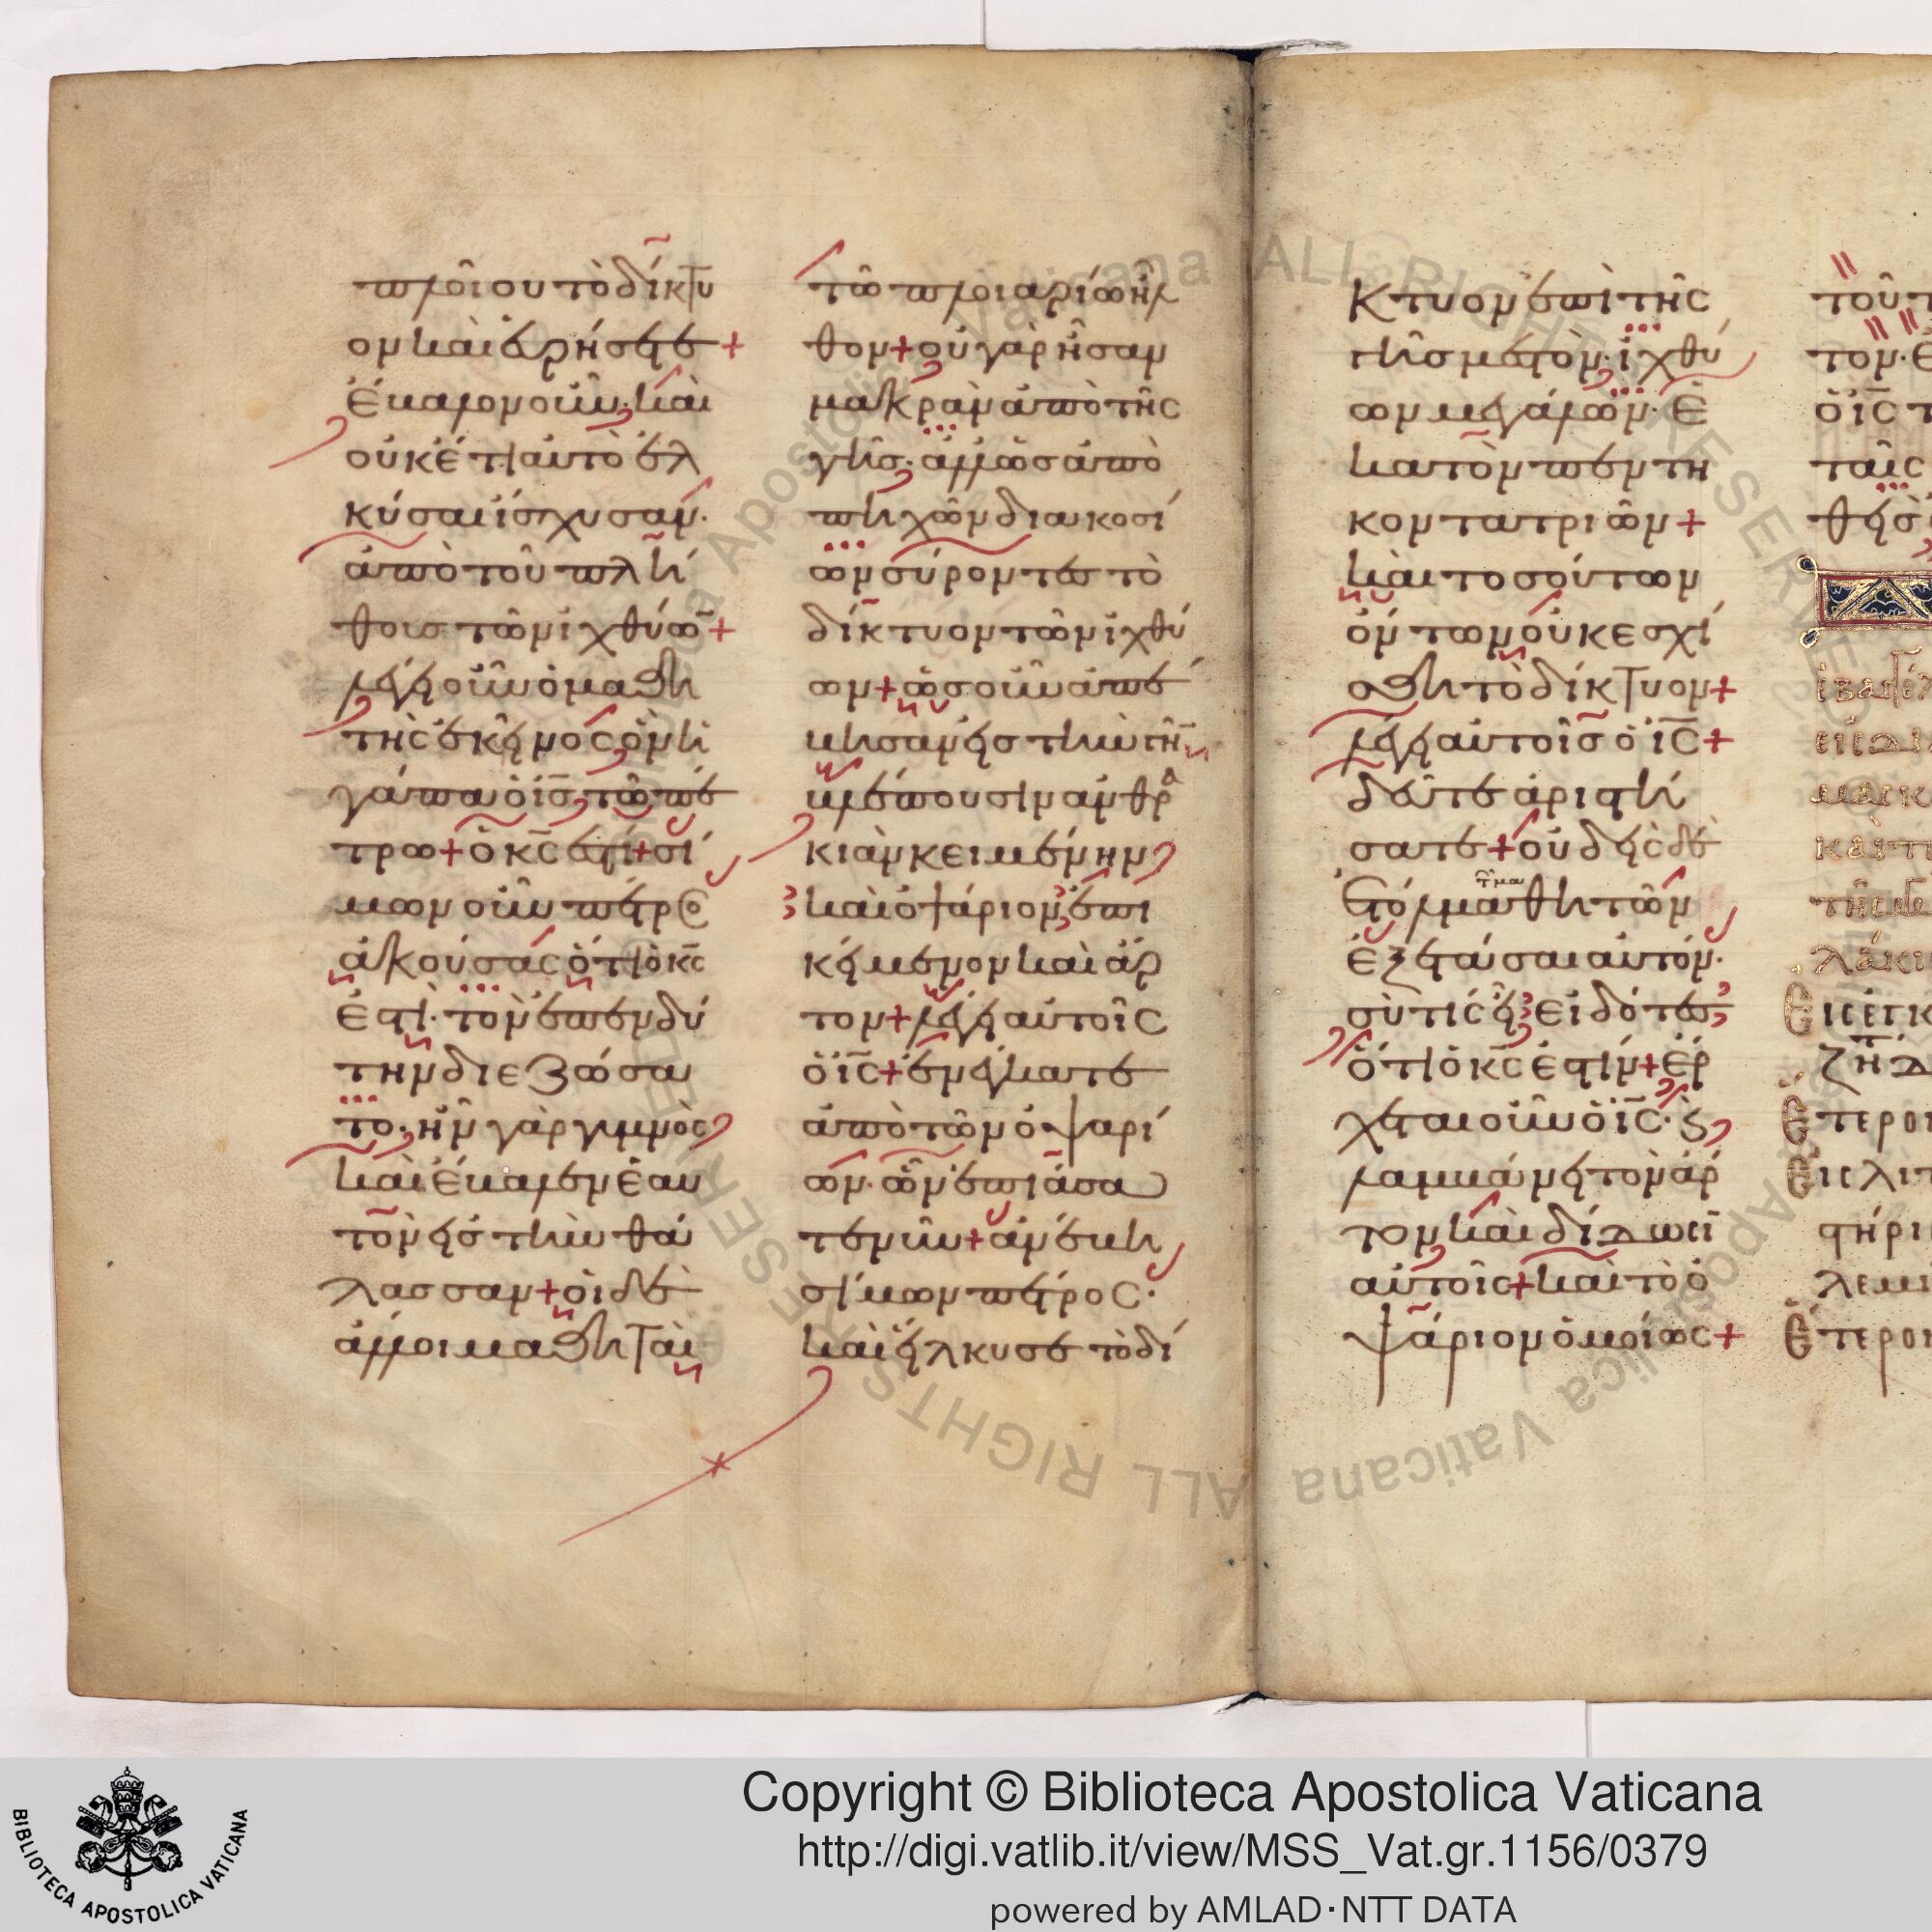 πλοίου τὸ δίκτυ
ον καὶ εὑρήσετε +
ἔβαλον οὖν· καὶ
οὐκέτι αὐτὸ ἑλ
κύσαι ἴσχυσαν·
ἀπὸ τοῦ πλή
θους τῶν ἰχθύω̅ +
λέγει οὖν ὁ μαθη
τὴς ἐκεῖνος ὃν ἠ
γάπα ὁ ις̅ τῶ πέ
τρω + ὁ κς̅ ἐστί + σί
μων οὖν πέτρο
ἀκούσας ὅτι ὁ κς̅
ἐστὶ· τὸν ἐπενδύ
την διεζώσα
το· ἦν γὰρ γυμνὸς
καὶ ἔβαλεν ἑαυ
τὸν εἰς τὴν θά
λασσαν + οἱ δὲ
ἄλλοι μαθηταὶ
τῶ πλοιαρίω ἦλ
θον + οὐ γὰρ ἦσαν
μακρὰν ἀπὸ τῆς
γῆς· ἀλλ' ὡς ἀπὸ
πηχῶν διακοσί
ων σύροντες τὸ
δίκτυον τῶν ἰχθύ
ων + ὡς οὖν ἀπέ
βησαν εἰς τὴν γῆ̅
βλέπουσιν ἀνθρα
κιὰν κειμένην
καὶ ὀψάριον ἐπι
κείμενον καὶ ἄρ
τον + λέγει αὐτοῖς
ὁ ις̅ + ἐνέγκατε
ἀπὸ τῶν ὀψαρί
ων· ὧν ἐπιάσα
τε νῦν + ἀνέβη
σίμων πέτρος·
καὶ εἵλκυσε τὸ δί
κτυον ἐπὶ τῆς
γῆς μεστὸν· ἰχθύ
ων μεγάλων· ἑ
κατὸν πεντη
κοντατριῶν +
καὶ τοσούτων
ὄντων οὐκ εσχί
σθη τὸ δίκτυον +
λέγει αὐτοῖς ὁ ις̅ +
δεῦτε ἀριστή
σατε + οὐδεὶς δὲ
ἐτόλμα τῶν μαθητῶν
ἐξετάσαι αὐτόν·
σὺ τίς εἶ εἰδότες
ὅτι ὁ κς̅ ἐστιν + ἔρ
χεται οὖν ὁ ις̅· ϗ
λαμβάνει τὸν ἄρ
τον καὶ δίδωσι
αὐτοῖς + καὶ τὸ ὀ
ψάριον ὁμοίως +
τοῦ
τον· ἐ
ὁ ις̅ τ
ταῖς
Copyright © Biblioteca Apostolica Vaticana
http://digi.vatlib.it/view/MSS_Vat.gr.1156/0379
powered by AMLAD·NTT DATA
BIBLIOTECA APOSTOLICA VATICANA